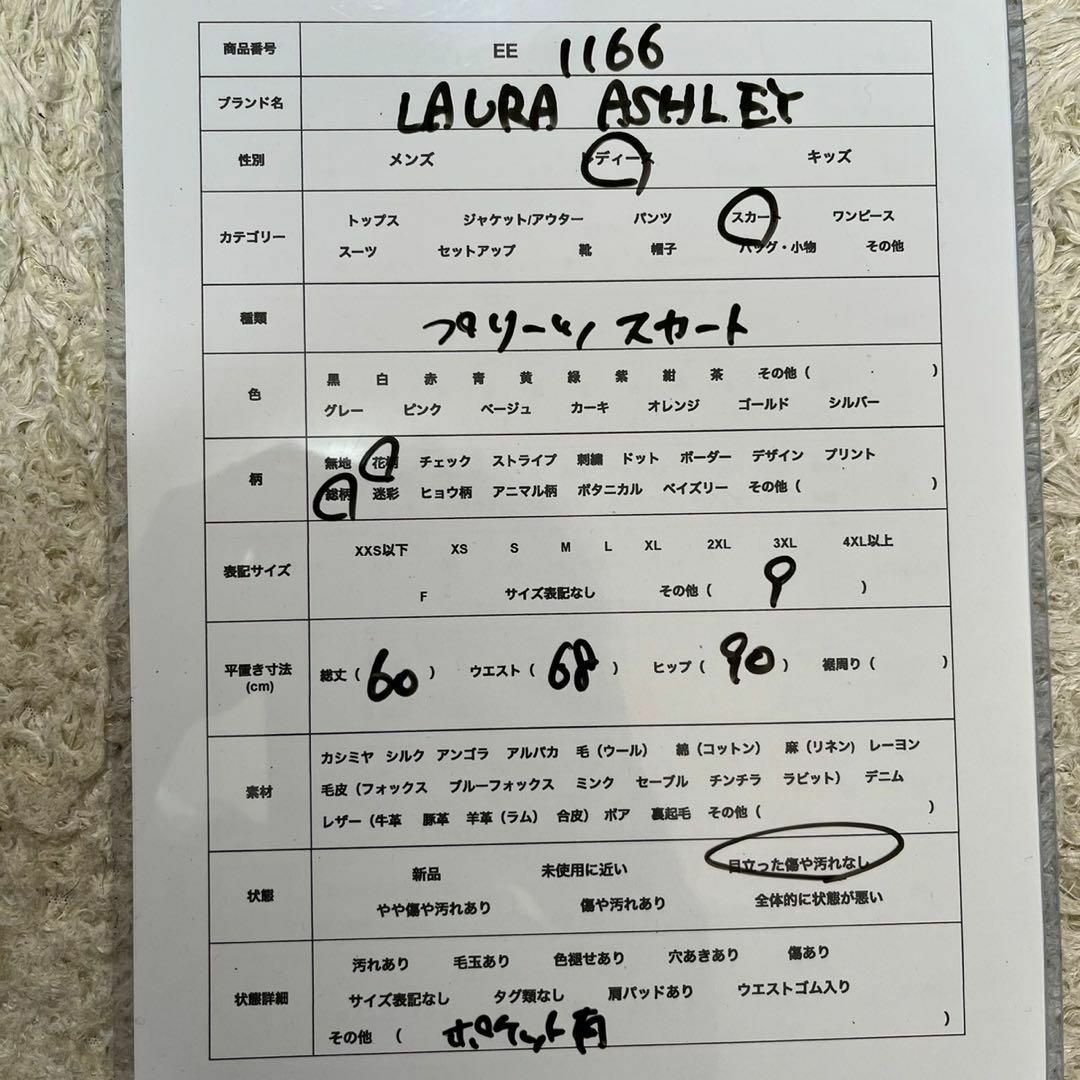 商品番号 EE 1166
ブランド名 LAURA ASHLEY
性別 メンズ レディース キッズ
カテゴリー
トップス ジャケット/アウター パンツ スカート ワンピース
スーツ セットアップ 靴 帽子 バッグ・小物 その他
種類 プリーツスカート
色
黒 白 赤 青 黄 緑 紫 紺 茶 その他( )
グレー ピンク ベージュ カーキ オレンジ ゴールド シルバー
柄
無地 花柄 チェック ストライプ 刺繍 ドット ボーダー デザイン プリント
総柄 迷彩 ヒョウ柄 アニマル柄 ボタニカル ペイズリー その他( )
表記サイズ
XXS以下 XS S M L XL 2XL 3XL 4XL以上
F サイズ表記なし その他( 9 )
平置き寸法
(cm)
総丈(60) ウエスト(68) ヒップ(90) 裾周り( )
素材
カシミヤ シルク アンゴラ アルパカ 毛(ウール) 綿(コットン) 麻(リネン) レーヨン
毛皮(フォックス ブルーフォックス ミンク セーブル チンチラ ラビット) デニム
レザー(牛革 豚革 羊革(ラム) 合皮) ボア 裏起毛 その他( )
状態
新品 未使用に近い 目立った傷や汚れなし
やや傷や汚れあり 傷や汚れあり 全体的に状態が悪い
状態詳細
汚れあり 毛玉あり 色褪せあり 穴あきあり 傷あり
サイズ表記なし タグ類なし 肩パッドあり ウエストゴム入り
その他 ( ポケット有 )